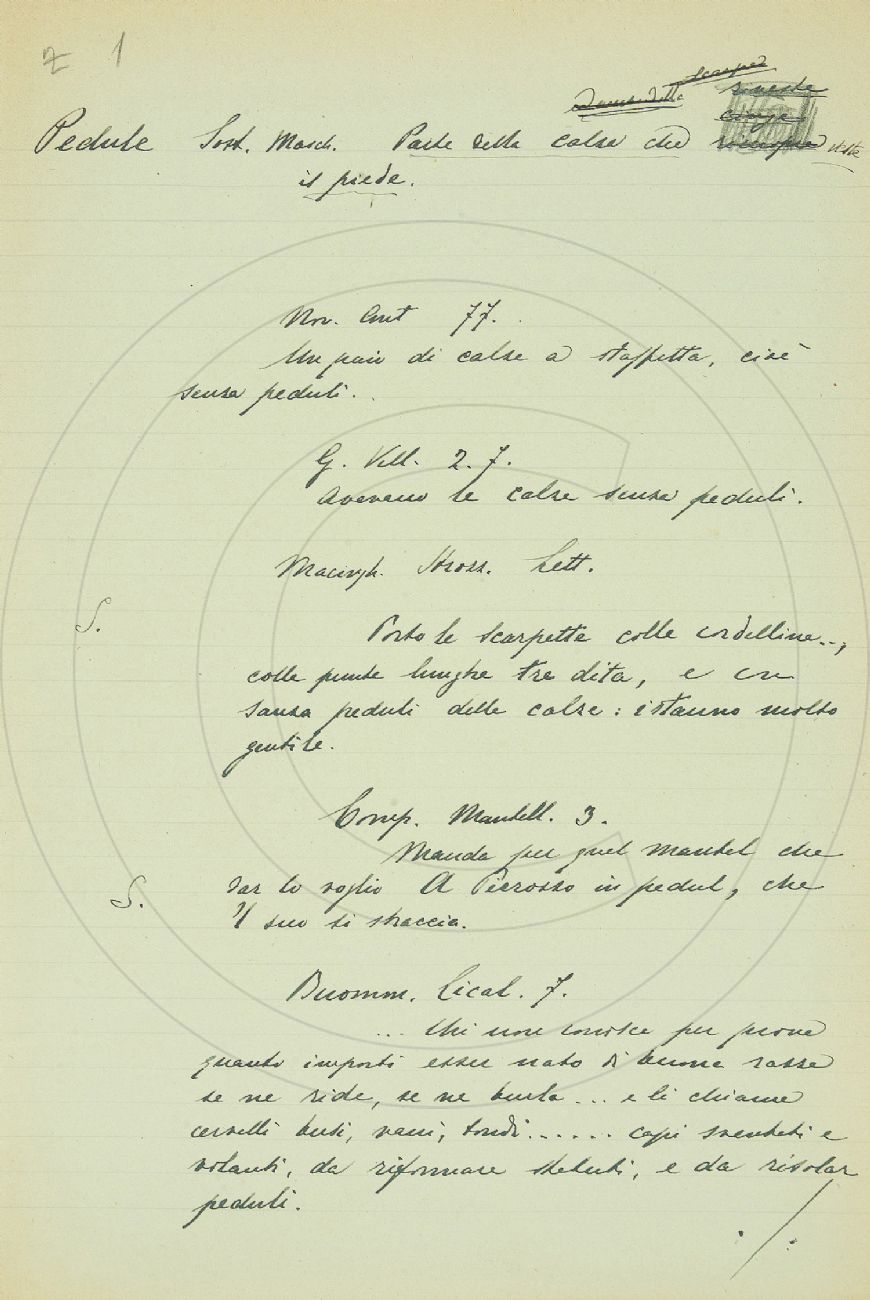 z 1
scarpa
siveste
Pedule Sost. Masch. Parte della calza che veste
il piede.
Nov. Ant 77.
Un paio di calze a staffetta, cioè
senza peduli.
G. Vill. 2. 7.
Avevano le calze senza peduli.
Macingh. Strozz. Lett.
S.
Porto le scarpette colle cordelline..,
colle punte lunghe tre dita, e con
sanza peduli delle calze: istanno molto
gentile.
Comp. Mantell. 3.
Manda per quel mantel che
S.
dar lo voglio A Pierozzo in pedul, che
'l suo si straccia.
Buomm. Cical. 7.
... Chi non conosce per prova
quanto importi esser nato di buona razza
se ne ride, se ne burla ... e li chiama
cervelli busi, vani, tondi ...... capi sventati e
volanti, da riformare statuti, e da risolar
peduli.
./.